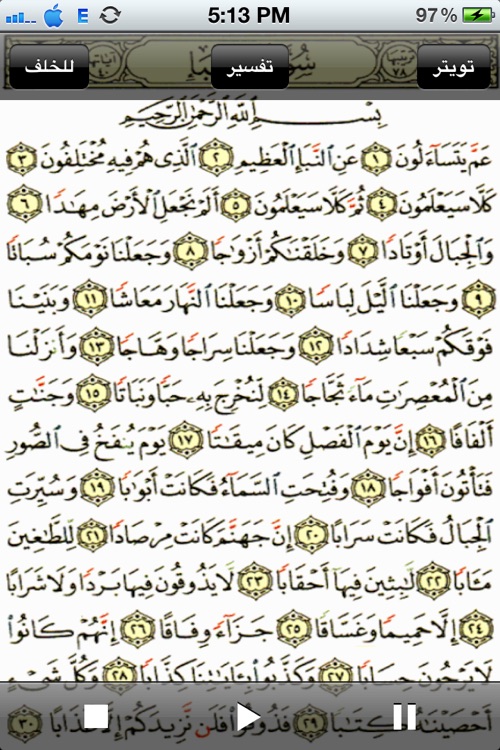 E 5:13 PM 97%
تويتر تفسير للخلف
بِسْمِ اللَّهِ الرَّحْمَٰنِ الرَّحِيمِ
عَمَّ يَتَسَاءَلُونَ ١ عَنِ النَّبَإِ الْعَظِيمِ ٢ الَّذِي هُمْ فِيهِ مُخْتَلِفُونَ ٣
كَلَّا سَيَعْلَمُونَ ٤ ثُمَّ كَلَّا سَيَعْلَمُونَ ٥ أَلَمْ نَجْعَلِ الْأَرْضَ مِهَادًا ٦
وَالْجِبَالَ أَوْتَادًا ٧ وَخَلَقْنَاكُمْ أَزْوَاجًا ٨ وَجَعَلْنَا نَوْمَكُمْ سُبَاتًا
٩ وَجَعَلْنَا اللَّيْلَ لِبَاسًا ١٠ وَجَعَلْنَا النَّهَارَ مَعَاشًا ١١ وَبَنَيْنَا
فَوْقَكُمْ سَبْعًا شِدَادًا ١٢ وَجَعَلْنَا سِرَاجًا وَهَّاجًا ١٣ وَأَنزَلْنَا
مِنَ الْمُعْصِرَاتِ مَاءً ثَجَّاجًا ١٤ لِّنُخْرِجَ بِهِ حَبًّا وَنَبَاتًا ١٥ وَجَنَّاتٍ
أَلْفَافًا ١٦ إِنَّ يَوْمَ الْفَصْلِ كَانَ مِيقَاتًا ١٧ يَوْمَ يُنفَخُ فِي الصُّورِ
فَتَأْتُونَ أَفْوَاجًا ١٨ وَفُتِحَتِ السَّمَاءُ فَكَانَتْ أَبْوَابًا ١٩ وَسُيِّرَتِ
الْجِبَالُ فَكَانَتْ سَرَابًا ٢٠ إِنَّ جَهَنَّمَ كَانَتْ مِرْصَادًا ٢١ لِّلطَّاغِينَ
مَآبًا ٢٢ لَّابِثِينَ فِيهَا أَحْقَابًا ٢٣ لَّا يَذُوقُونَ فِيهَا بَرْدًا وَلَا شَرَابًا
٢٤ إِلَّا حَمِيمًا وَغَسَّاقًا ٢٥ جَزَاءً وِفَاقًا ٢٦ إِنَّهُمْ كَانُوا
لَا يَرْجُونَ حِسَابًا ٢٧ وَكَذَّبُوا بِآيَاتِنَا كِذَّابًا ٢٨ وَكُلَّ شَيْءٍ
أَحْصَيْنَاهُ كِتَابًا ٢٩ فَذُوقُوا فَلَن نَّزِيدَكُمْ إِلَّا عَذَابًا ٣٠